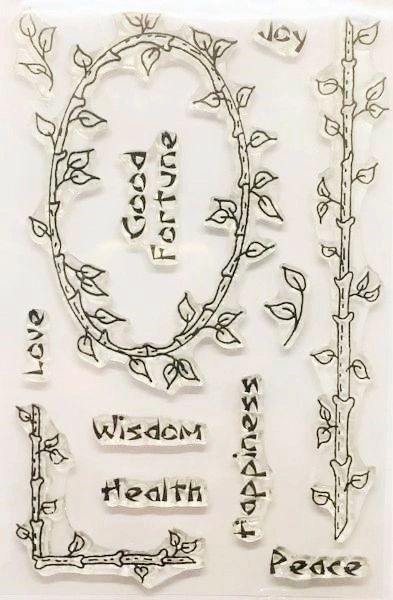 Joy
Good
Fortune
Love
Wisdom
Happiness
Health
Peace